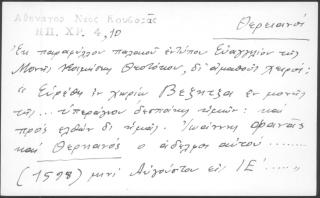 Ἀθέναγος Νέος Κουβαρᾶς
ΗΠ. ΧΡ. 4, 10
Θερειανός
Ἐκ παραφύλλου παλαιοῦ ἐντύπου Εὐαγγελίου τῆς
Μονῆς Κοιμήσεως Θεοτόκου, δι' ἀμαθοῦς χειρός:
" Εὑρέθη ἐν χωρίῳ Βεζητζα ἐν μονῆς
τῆς ... ὑπεράγιον δεσποίνης ἡμῶν: καὶ
πρός ἐλθών δι' ἡμᾶς. Ἰωάννης
καὶ Θερηανός ὁ ἀδελφός αὐτοῦ ........
(1598) μηνί Αὐγούστου εἰς ΙΕ ....... "